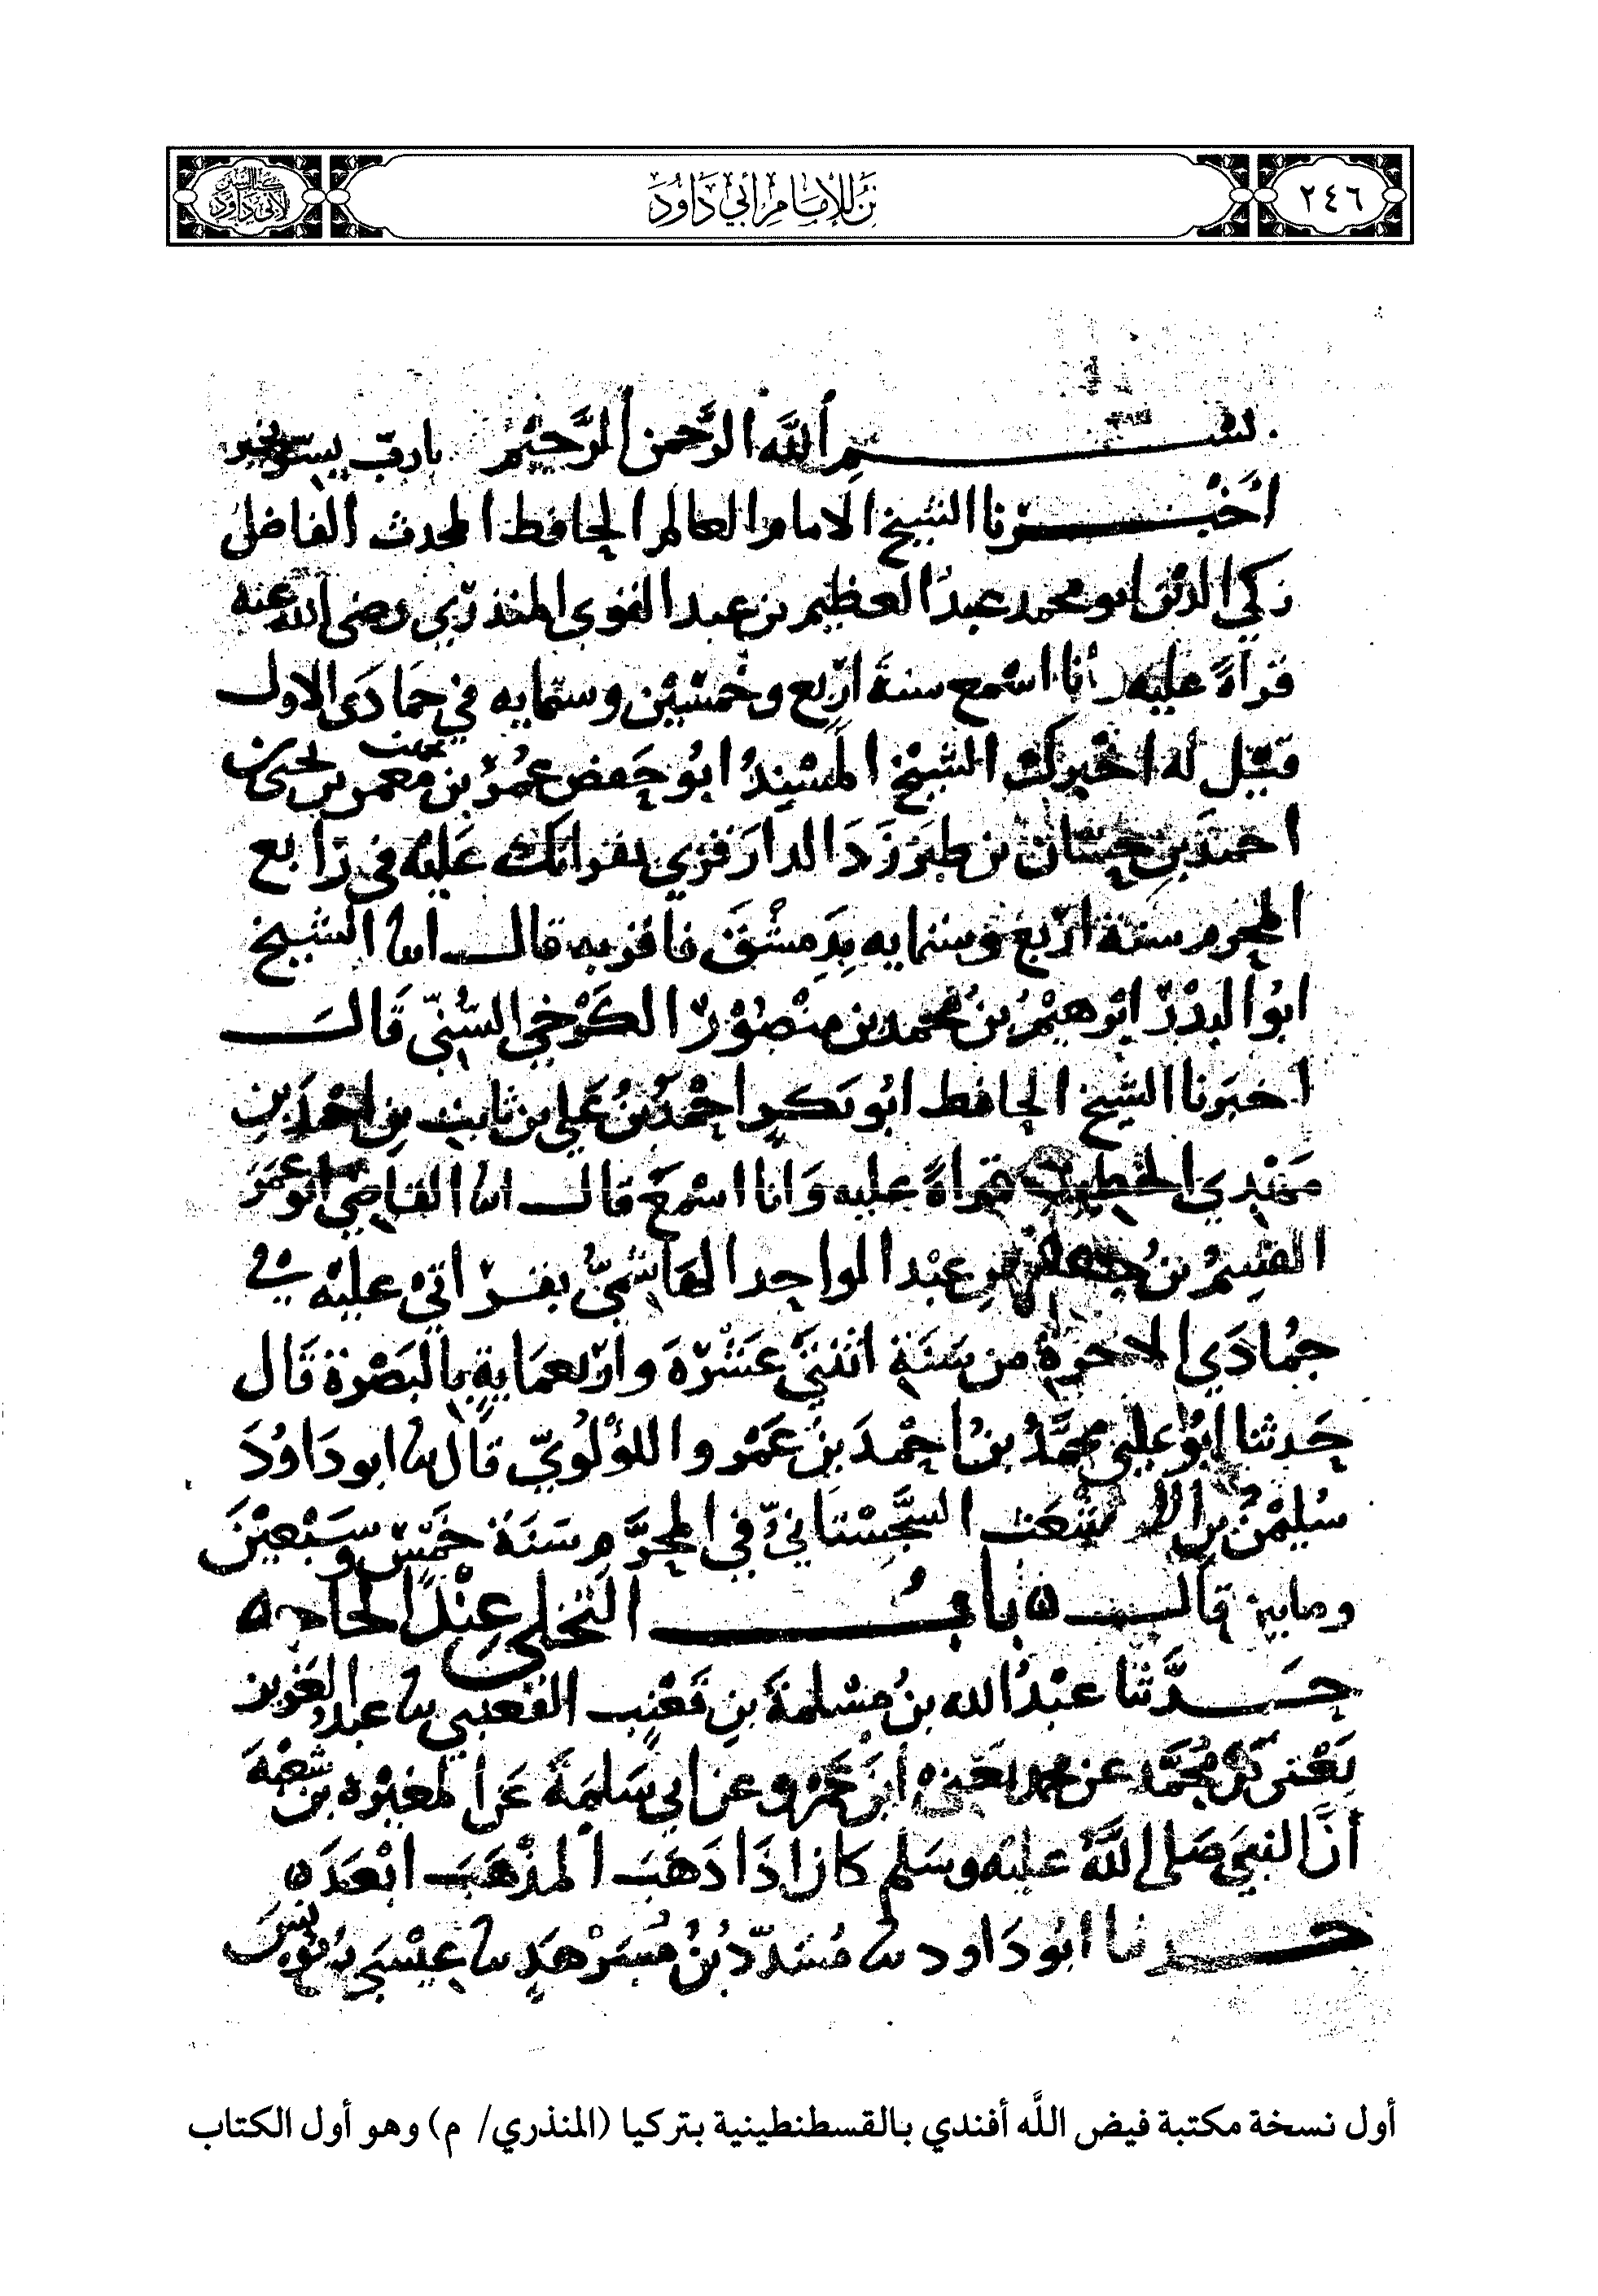 ٢٤٦
نن للإمام أبي داود
كتاب السنن لأبي داود
بسم الله الرحمن الرحيم يارب يسر بخير
أخبرنا الشيخ الامام العالم الحافظ المحدث الفاضل
زكي الدين ابو محمد عبد العظيم بن عبد القوى المنذري رضى الله عنه
قراة عليه وأنا اسمع سنة اربع وخمسين وستمايه في جمادى الاول
قيل له اخبرك الشيخ المسند ابو حفص عمر بن محمد بن معمر بن يحيى بن
احمد بن حسان بن طبرزد الدارقزي بقراتك عليه في رابع
المحرم سنة اربع وستمايه بدمشق فاقر به قال انا الشيخ
ابو البدر ابرهيم بن محمد بن منصور الكرخي السني قال
اخبرنا الشيخ الحافظ ابو بكر احمد بن علي بن ثابت بن احمد بن
مهدي الخطيب قراة عليه وانا اسمع قال انا القاضي ابو عمر
القسم بن جعفر بن عبد الواحد الهاشمي بقراتي عليه في
جمادي الاخرة من سنة اثنتي عشرة واربعماية بالبصرة قال
حدثنا ابو علي محمد بن احمد بن عمرو اللؤلوي قال نا ابو داود
سليمن بن الاشعث السجستاني في المحرم سنة خمس وسبعين
ومايتين قال ٥ باب التخلي عند الحاجه ٥
حدثنا عبد الله بن مسلمة بن قعنب القعنبي نا عبد العزيز
يعنى بن محمد عن محمد يعني ابن عمرو عن ابي سلمة عن المغيره بن شعبة
أن النبي صلى الله عليه وسلم كان اذا ذهب المذهب ابعد ٥
حدثنا ابو داود نا مسدد بن مسرهد نا عيسى بن يونس
أول نسخة مكتبة فيض اللَّه أفندي بالقسطنطينية بتركيا (المنذري/ م) وهو أول الكتاب